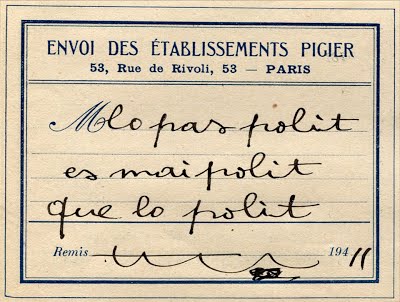 ENVOI DES ÉTABLISSEMENTS PIGIER
53, Rue de Rivoli, 53 — PARIS
Mlo pas polit
es mai polit
que lo polit
Remis 194 11